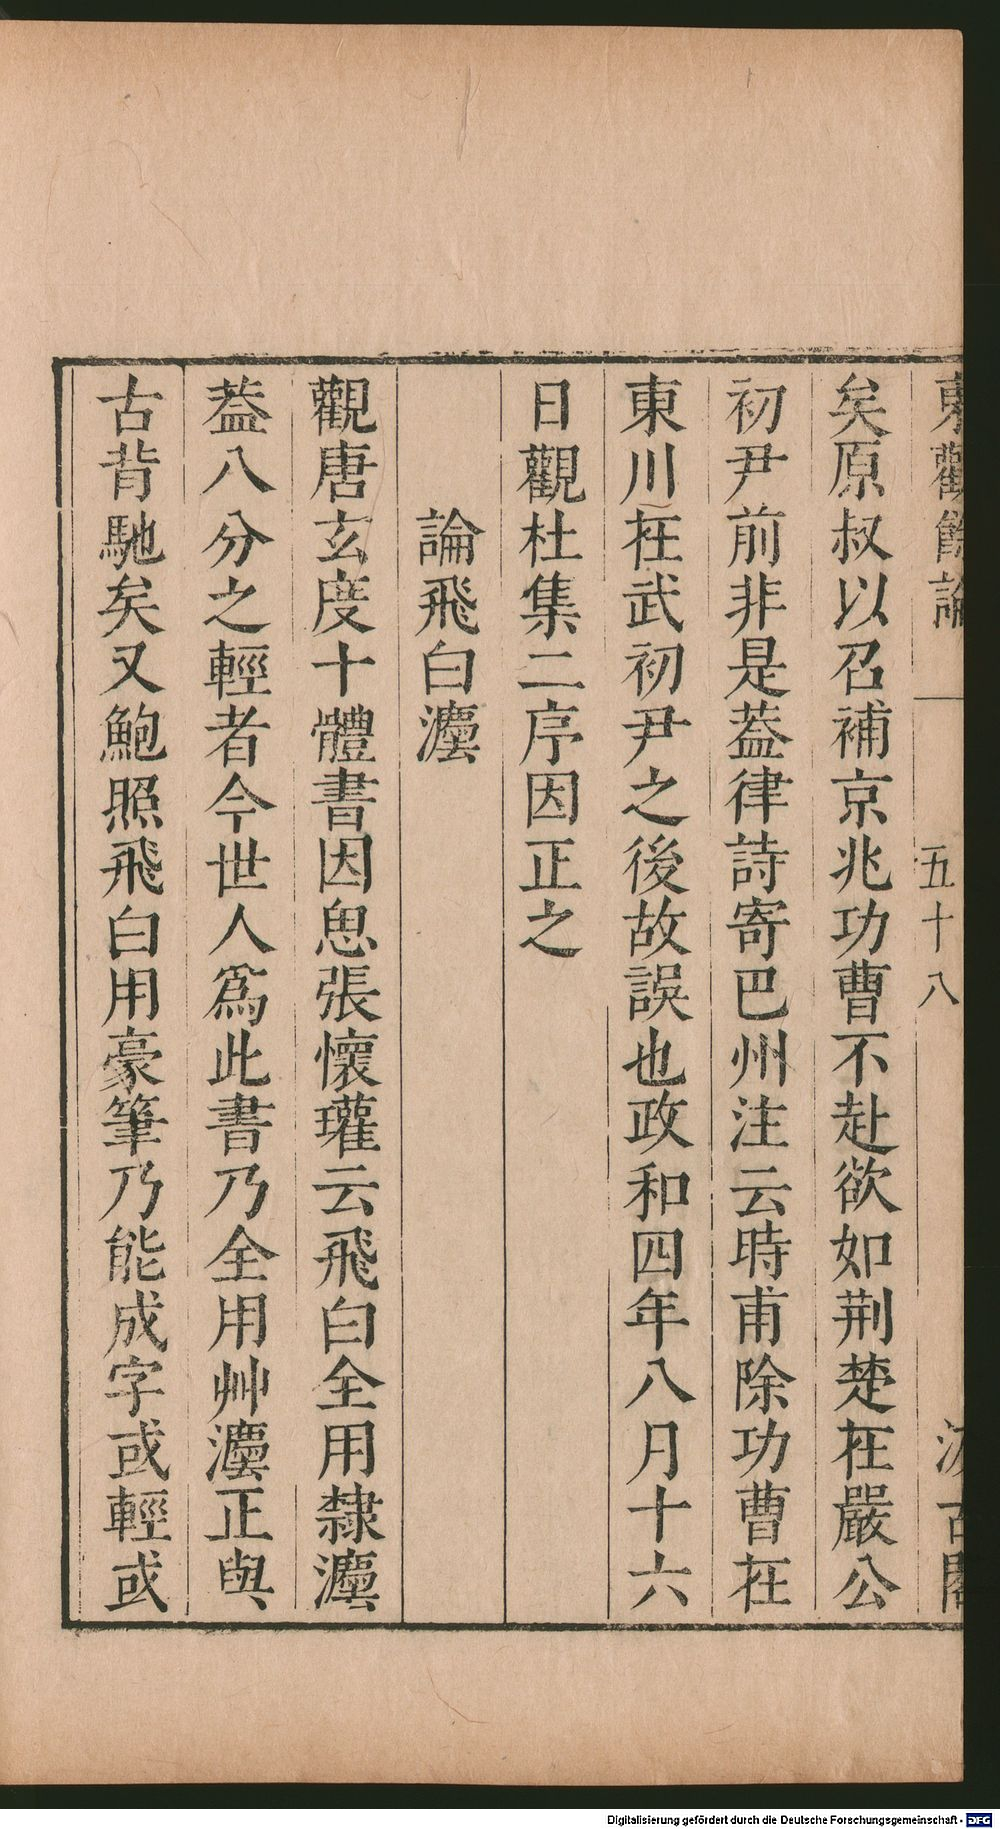 東觀餘論 五十八 汲古閣
矣原叔以召補京兆功曹不赴欲如荆楚在嚴公
初尹前非是葢律詩寄巴州注云時甫除功曹在
東川在武初尹之後故誤也政和四年八月十六
日觀杜集二序因正之
論飛白灋
觀唐玄度十體書因思張懷瓘云飛白全用隸灋
葢八分之輕者今世人爲此書乃全用艸灋正與
古背馳矣又鮑照飛白用豪筆乃能成字或輕或
Digitalisierung gefördert durch die Deutsche Forschungsgemeinschaft - DFG